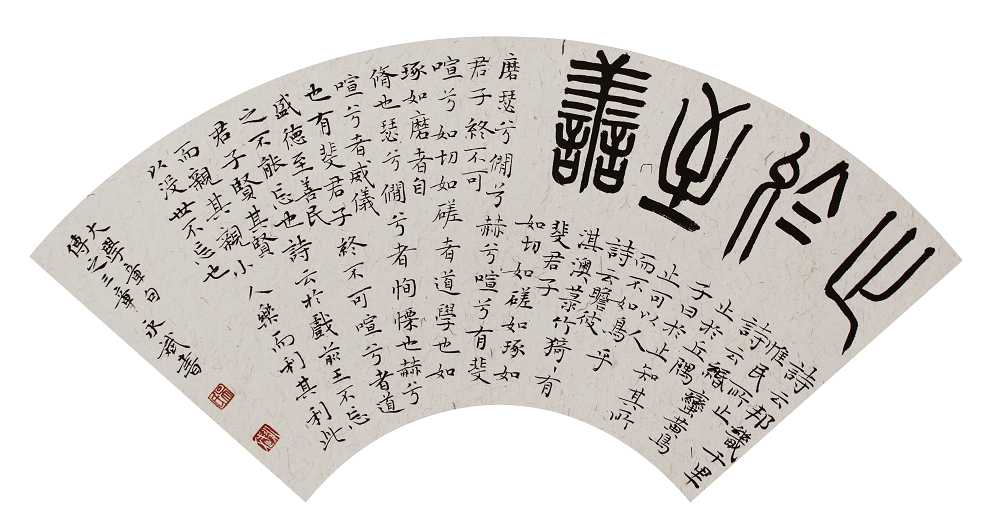 止於至善
詩云邦畿千里
惟民所止
詩云緡蠻黃鳥
止於丘隅
子曰於止知其所
止可以人
而不如鳥乎
詩云瞻彼
淇澳菉竹猗猗有
斐君子
如切如磋如琢如
磨瑟兮僩兮赫兮喧兮有斐
君子終不可
喧兮如切如磋者道學也如
琢如磨者自
脩也瑟兮僩兮者恂慄也赫兮
喧兮者威儀
也有斐君子終不可喧兮者道
盛德至善民
之不能忘也詩云於戲前王不忘
君子賢其賢
而親其親小人樂而利其利此
以没世不忘也
大學章句
傳之三章
書